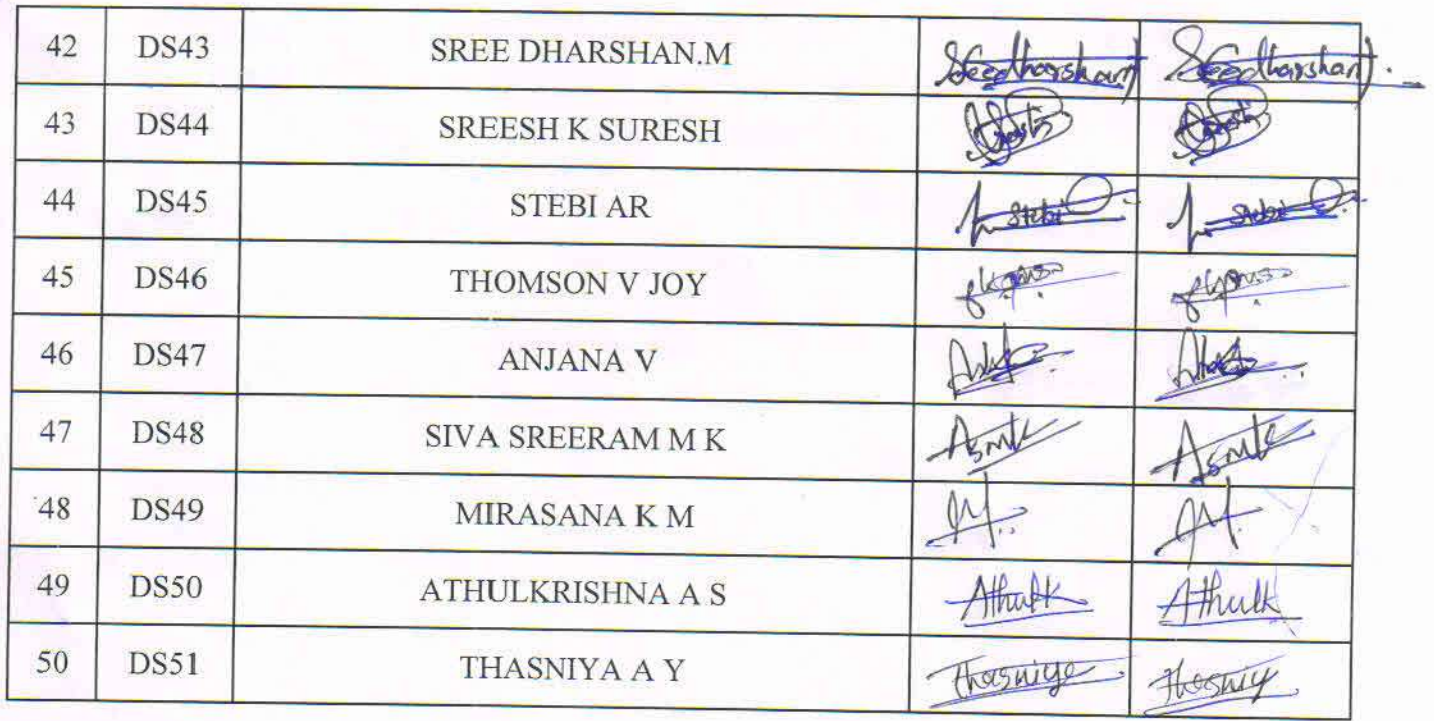 42 DS43 SREE DHARSHAN.M Sreedharshan Sreedharshan
43 DS44 SREESH K SURESH
44 DS45 STEBI AR Stebi Stebi
45 DS46 THOMSON V JOY
46 DS47 ANJANA V
47 DS48 SIVA SREERAM M K Asmk Asmk
48 DS49 MIRASANA K M M. M.
49 DS50 ATHULKRISHNA A S Athulk Athulk
50 DS51 THASNIYA A Y Thasniya Thasniy